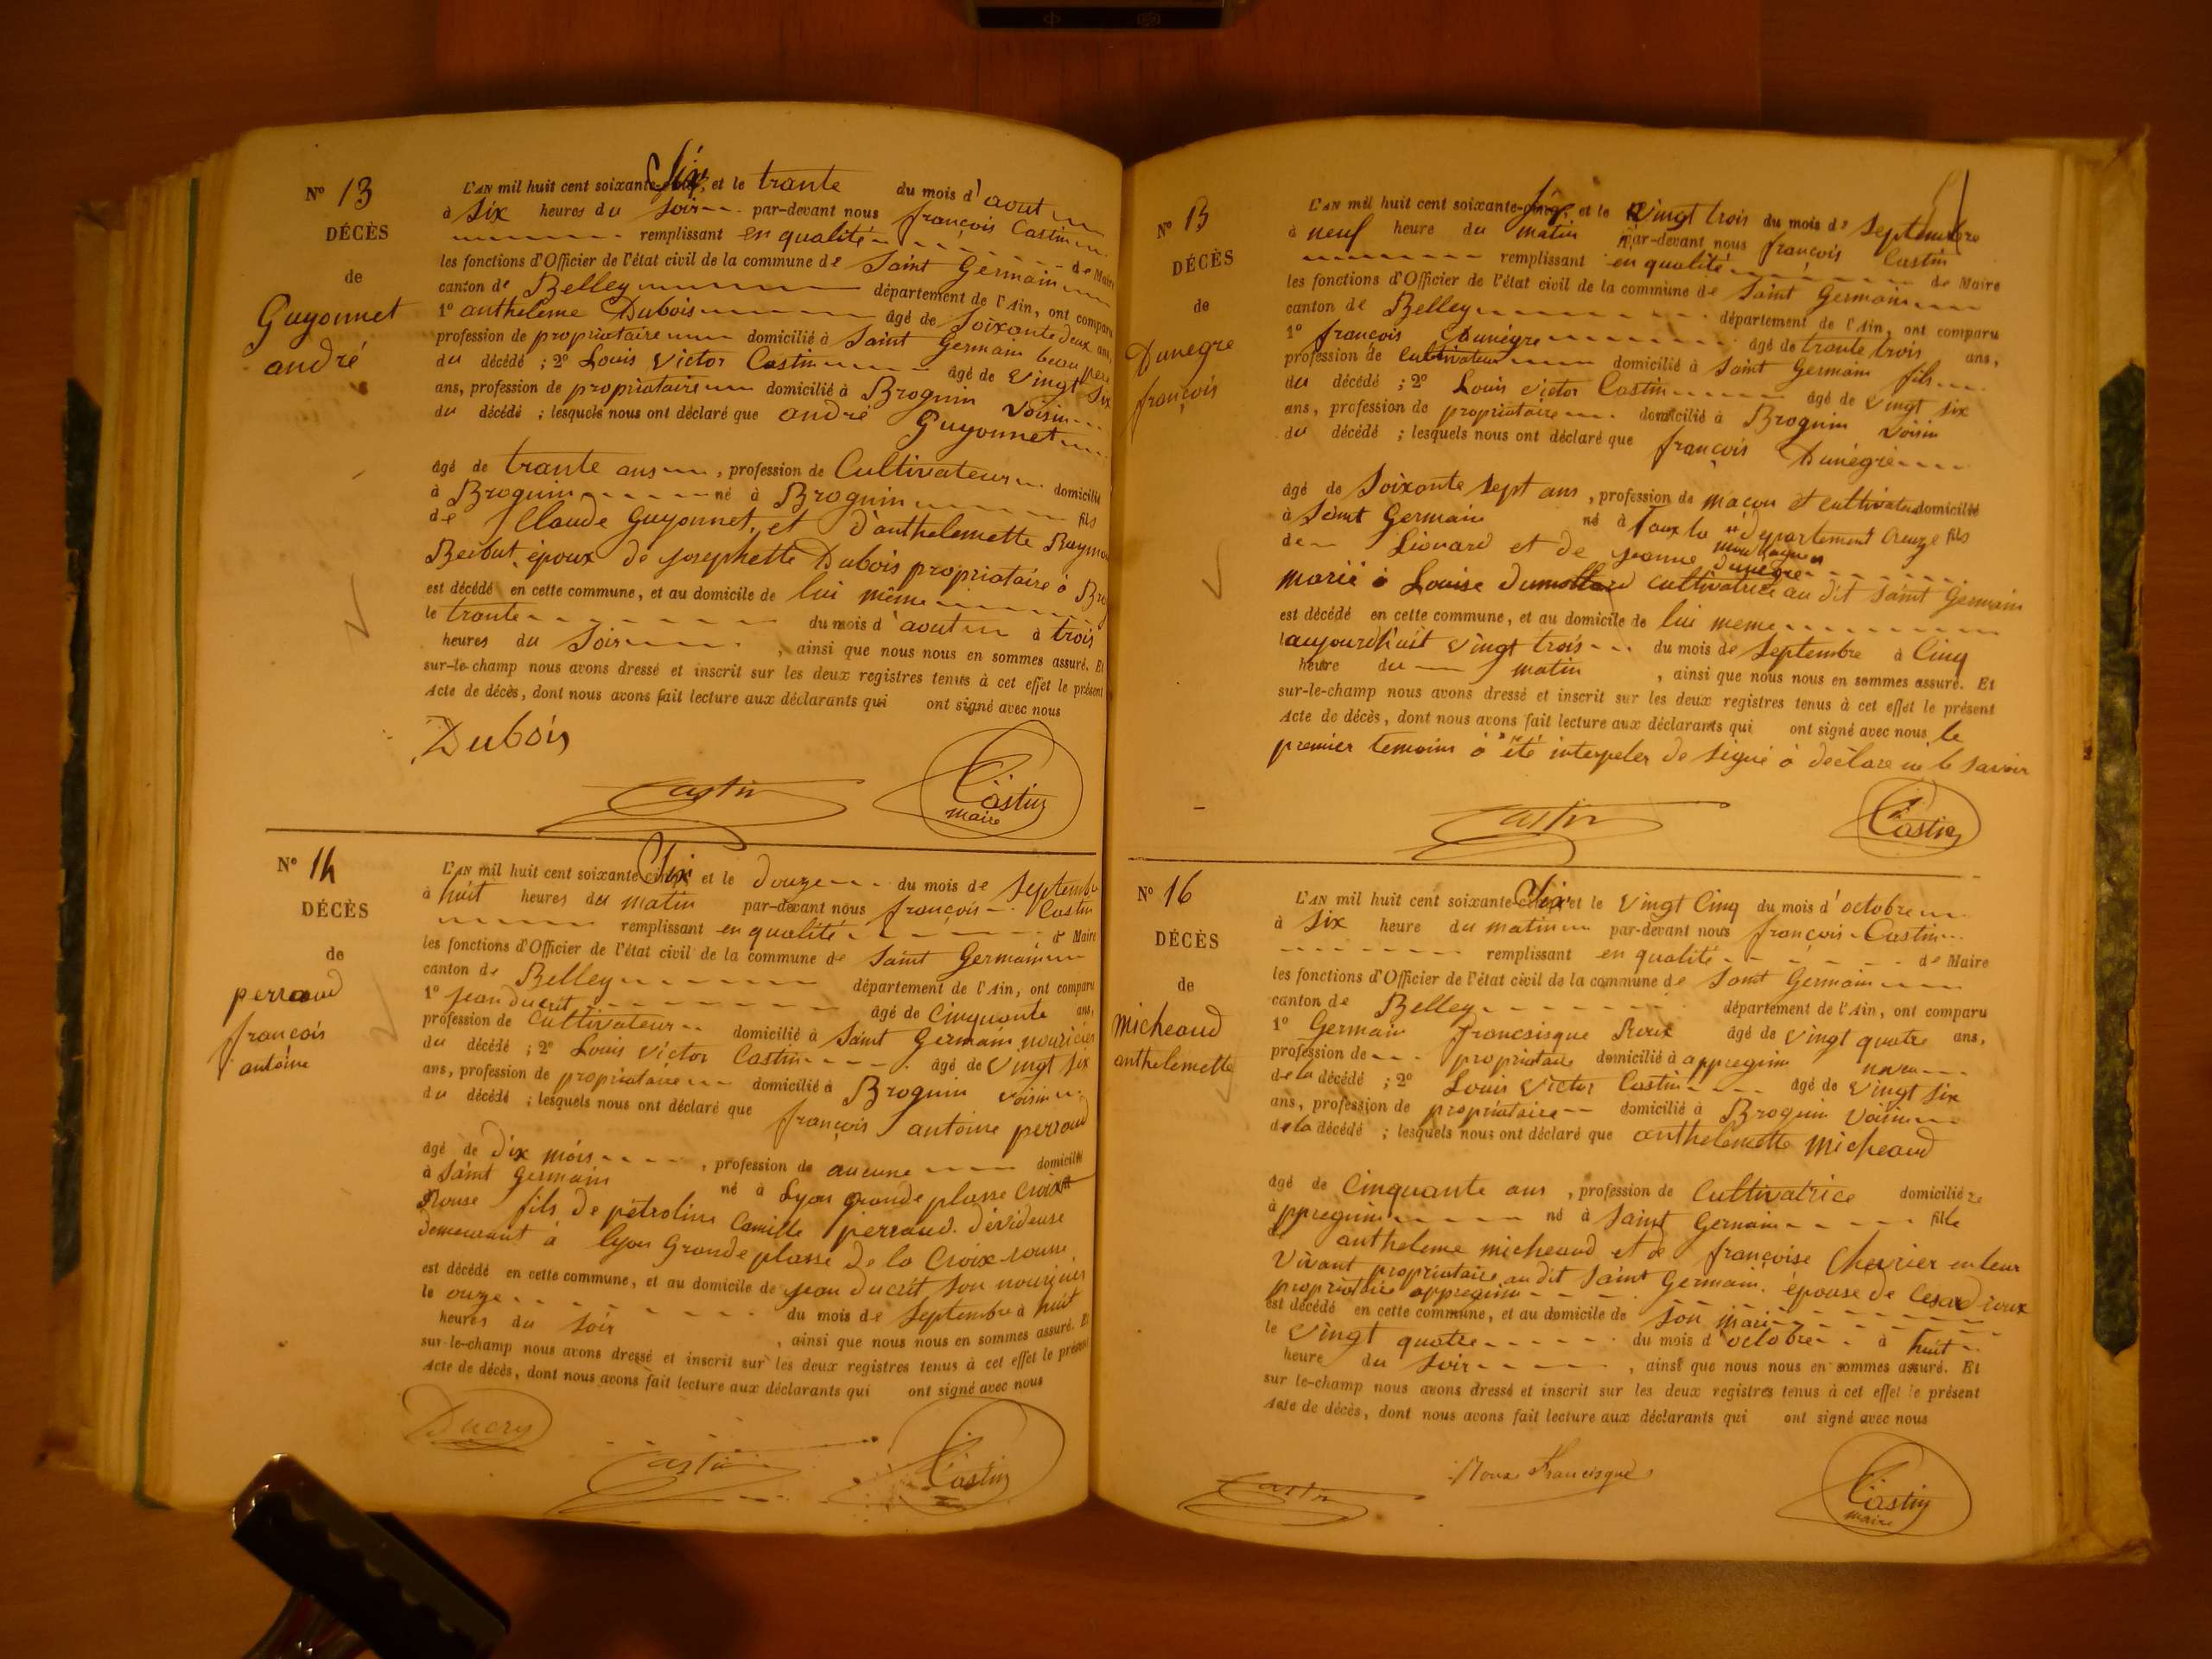 N° 13
DÉCÈS
de
Guyonnet
andré
L'AN mil huit cent soixante Six, et le trante du mois d'aout
à Six heures du Soir par-devant nous françois Castin
remplissant en qualité de Maire
les fonctions d'Officier de l'état civil de la commune de Saint Germain
canton de Belley département de l'Ain, ont comparu
1° anthelème Dubois âgé de Soixante deux ans,
profession de propriataire domicilié à Saint Germain beau pere
du décédé ; 2° Louis Victor Castin âgé de Vingt Six
ans, profession de propriataire domicilié à Brognin Voisin
du décédé ; lesquels nous ont déclaré que andré Guyonnet
âgé de trante ans, profession de Cultivateur domicilié
à Brognin né à Brognin fils
de Claude Guyonnet, et d'anthelemette
époux de josephette Dubois propriataire à
est décédé en cette commune, et au domicile de lui même
le trante du mois d'aout à trois
heures du Soir, ainsi que nous nous en sommes assuré. Et
sur-le-champ nous avons dressé et inscrit sur les deux registres tenus à cet effet le présent
Acte de décès, dont nous avons fait lecture aux déclarants qui ont signé avec nous
Dubois
Castin
Castin
maire
N° 14
DÉCÈS
de
perraud
françois
antoine
L'AN mil huit cent soixante Six et le douze du mois de Septembre
à huit heures du matin par-devant nous françois Castin
remplissant en qualité de Maire
les fonctions d'Officier de l'état civil de la commune de Saint Germain
canton de Belley département de l'Ain, ont comparu
1° jean ducrit âgé de Cinquante ans,
profession de Cultivateur domicilié à Saint Germain nouricier
du décédé ; 2° Louis Victor Castin âgé de Vingt six
ans, profession de propriataire domicilié à Brognin voisin
du décédé ; lesquels nous ont déclaré que françois antoine perraud
âgé de dix mois, profession de aucune domicilié
à Saint Germain né à Lyon grande plasse Croix
Rouse fils de pétroline Camille perraud dévideuse
demeurant à lyon Grande plasse de la Croix rousse
est décédé en cette commune, et au domicile de jean ducrit son nouricier
le onze du mois de Septembre à huit
heures du soir, ainsi que nous nous en sommes assuré. Et
sur-le-champ nous avons dressé et inscrit sur les deux registres tenus à cet effet le présent
Acte de décès, dont nous avons fait lecture aux déclarants qui ont signé avec nous
Ducry
Castin
Castin
N° 15
DÉCÈS
de
Dunegre
françois
L'AN mil huit cent soixante-Six, et le Vingt trois du mois de Septembre
à neuf heure du matin par-devant nous françois Castin
remplissant en qualité de Maire
les fonctions d'Officier de l'état civil de la commune de Saint Germain
canton de Belley département de l'Ain, ont comparu
1° françois Dunégre âgé de trante trois ans,
profession de Cultivateur domicilié à Saint Germain fils
du décédé ; 2° Louis victor Castin âgé de Vingt six
ans, profession de propriataire domicilié à Brognin Voisin
du décédé ; lesquels nous ont déclaré que françois Dunégre
âgé de Soixonte Sept ans, profession de maçon et cultivateur domicilié
à Saint Germain né à faux la departement Creuze fils
montagne
de Lionard et de jeanne dunegre
marié à Louise dumollard cultivatrice au dit Saint Germain
est décédé en cette commune, et au domicile de lui meme
aujourdhuit Vingt trois du mois de Septembre à Cinq
heure du matin, ainsi que nous nous en sommes assuré. Et
sur-le-champ nous avons dressé et inscrit sur les deux registres tenus à cet effet le présent
Acte de décès, dont nous avons fait lecture aux déclarants qui ont signé avec nous le
premier temoins à été interpeler de signé à déclare ne le savoir
Castin
Castin
N° 16
DÉCÈS
de
micheaud
anthelemette
L'AN mil huit cent soixante-Six et le Vingt Cinq du mois d'octobre
à Six heure du matin par-devant nous françois Castin
remplissant en qualité de Maire
les fonctions d'Officier de l'état civil de la commune de Saint Germain
canton de Belley département de l'Ain, ont comparu
1° Germain francisque Roux âgé de Vingt quatre ans,
profession de propriataire domicilié à appregnin neveu
de la décédé ; 2° Louis Victor Castin âgé de Vingt Six
ans, profession de propriataire domicilié à Brognin Voisin
de la décédé ; lesquels nous ont déclaré que anthelemette micheaud
âgé de Cinquante ans, profession de Cultivatrice domiciliée
à ppregnin né à Saint Germain fille
de antheleme micheaud et de françoise Chevrier en leur
Vivant propriataire au dit Saint Germain. épouse de Cesard roux
propriataire appregnin
est décédé en cette commune, et au domicile de son mari
le Vingt quatre du mois d'octobre à huit
heure du Soir, ainsi que nous nous en sommes assuré. Et
sur le-champ nous avons dressé et inscrit sur les deux registres tenus à cet effet le présent
Acte de décès, dont nous avons fait lecture aux déclarants qui ont signé avec nous
Castin
Roux Francisque
Castin
maire